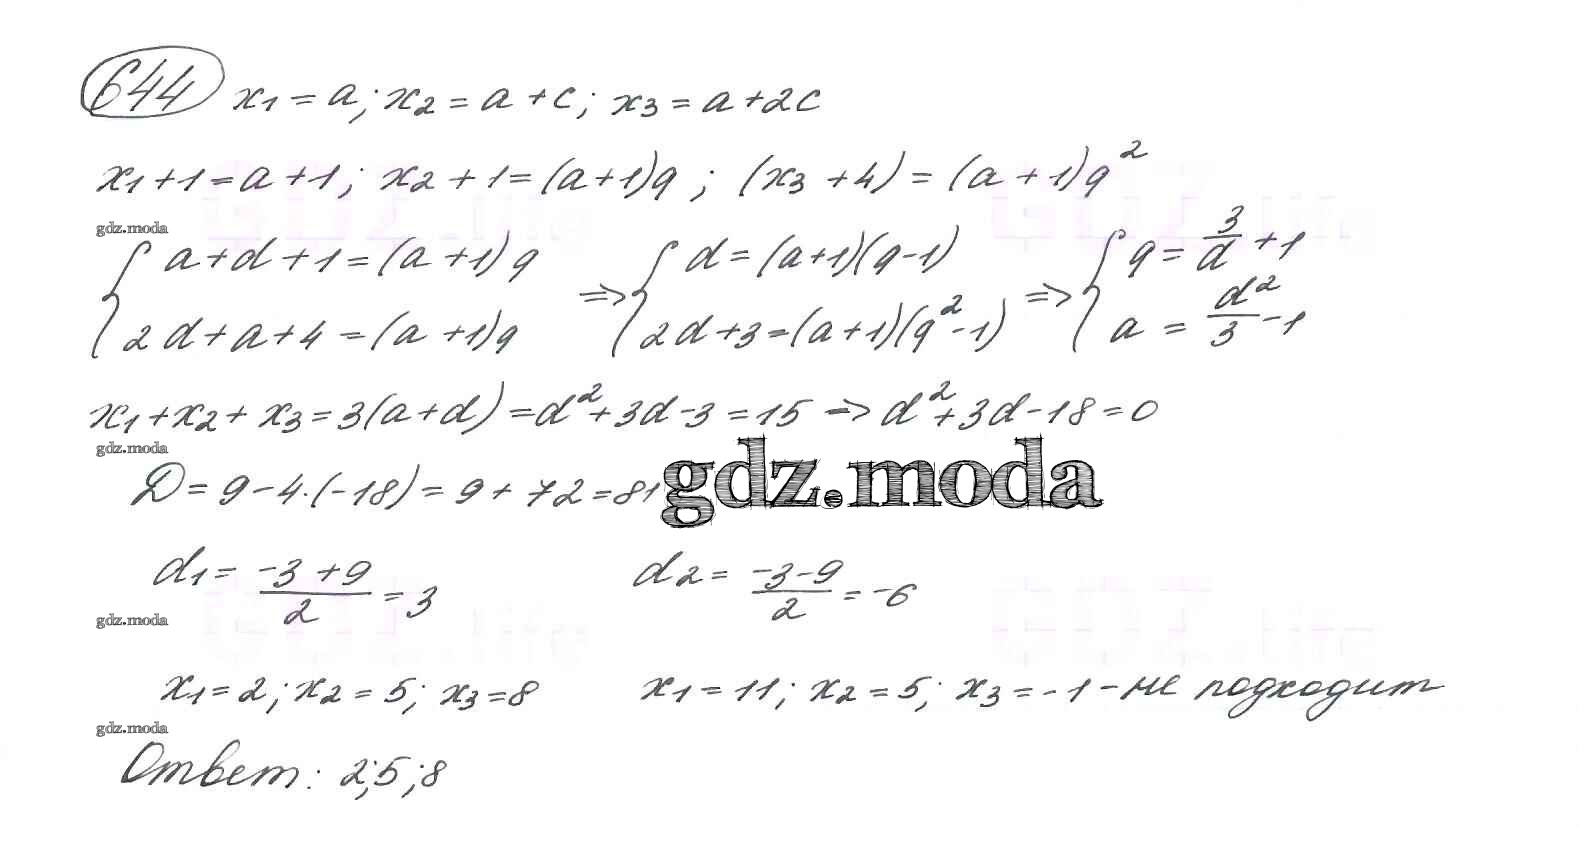 644 x1 = a; x2 = a + c; x3 = a + 2c
x1 + 1 = a + 1; x2 + 1 = (a+1)q; (x3 + 4) = (a + 1)q²
gdz.moda
{ a + d + 1 = (a + 1)q => { d = (a+1)(q-1) => { q = 3/d + 1
2d + a + 4 = (a + 1)q 2d + 3 = (a + 1)(q² - 1) a = d²/3 - 1
x1 + x2 + x3 = 3(a + d) = d² + 3d - 3 = 15 => d² + 3d - 18 = 0
gdz.moda
D = 9 - 4·(-18) = 9 + 72 = 81
gdz.moda
d1 = (-3 + 9)/2 = 3 d2 = (-3 - 9)/2 = -6
gdz.moda
x1 = 2; x2 = 5; x3 = 8 x1 = 11; x2 = 5; x3 = -1 - не подходит
gdz.moda
Ответ: 2; 5; 8